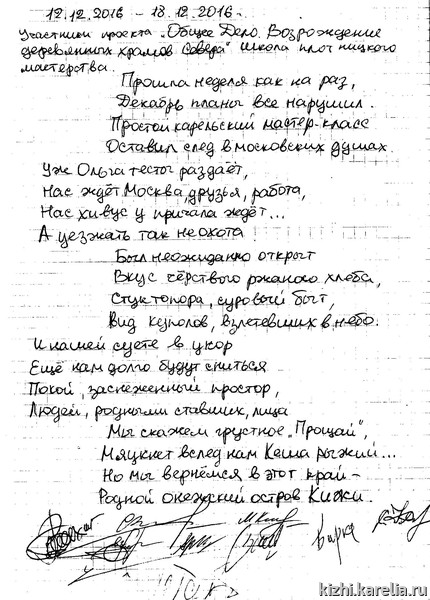 12.12.2016 - 18.12.2016.
Участники проекта "Общее Дело. Возрождение
деревянных храмов Севера" школа плотницкого
мастерства.
Прошла неделя как на раз,
Декабрь планы все нарушил.
Простой карельский мастер-класс
Оставил след в московских душах.
Уж Ольга тесто раздаёт,
Нас ждёт Москва, друзья, работа,
Нас хивус у причала ждёт...
А уезжать так неохота
Был неожиданно открыт
Вкус чёрствого ржаного хлеба,
Стук топора, суровый быт,
Вид куполов, взлетевших в небо.
И нашей суете в укор
Ещё нам долго будут сниться
Покой, заснеженный простор,
Людей, родными ставших, лица
Мы скажем грустное "Прощай",
Мяукнет вслед нам Кеша рыжий...
Но мы вернёмся в этот край -
Родной онежский остров Кижи.
kizhi.karelia.ru